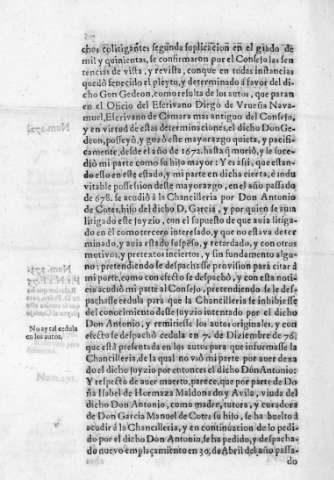 chos colitigantes segunda suplicacion en el grado de
mil y quinientas, se confirmaron por el Consejo las sen
tencias de vista, y revista, conque en todas instancias
quedò fenecido el pleyto, y determinado à favor del di-
cho Gon Gedeon, como resulta de los autos, que paran
en el Oficio del Escrivano Diego de Vrueña Nava-
muel, Escrivano de Camara mas antiguo del Consejo,
y en virtud de estas determinaciones, el dicho Don Ge-
deon, posseyò, y gozò este mayorazgo, quieta, y pacifi-
camente, desde el año de 1672. hasta q̃ muriò, y le suce-
diò mi parte como su hijo mayor: Y es assi, que estan-
do esto en este estado, y mi parte en dicha cierta, è indu
vitable possession deste mayorazgo, en el año passado
de 678. se acudiò à la Chancilleria por Don Antonio
de Cotes, hijo del dicho D. Garcia, y por quien se auia
litigado este juyzio, con el supuesto de que auia litiga-
do en èl como tercero interesado, y que no estava deter
minado, y auia estado suspenso, y retardado, y con otros
motivos, y pretextos inciertos, y sin fundamento algu-
no: pretendiendo se despachasse provision para citar à
mi parte, como con efecto se despachò, y con esta noti-
cia acudiò mi parte al Consejo, pretendiendo se le des-
pachasse cedula para que la Chancilleria se inhibiesse
del conocimiento deste juyzio intentado por el dicho
Don Antonio, y remitiesse los autos originales, y con
efecto se despachò cedula en 7. de Diziembre de 76.
No ay tal cedula
en los autos.
que està presentada en los autos para que informasse la
Chancilleria, de la qual no vsò mi parte por auer dexa
do el dicho juyzio por entonces el dicho Don Antonio:
Y respecto de auer muerto, parece, que por parte de Do
ña Isabel de Hormaza Maldonado y Avila, viuda del
dicho Don Antonio, como madre, tutora, y curadora
de Don Garcia Manuel de Cotes su hijo, se ha buelto à
acudir à la Chancilleria, y en continuacion de lo pedi-
do por el dicho Don Antonio, se ha pedido, y despacha-
do nuevo emplaçamiento en 30. de Abril del año passa-
do